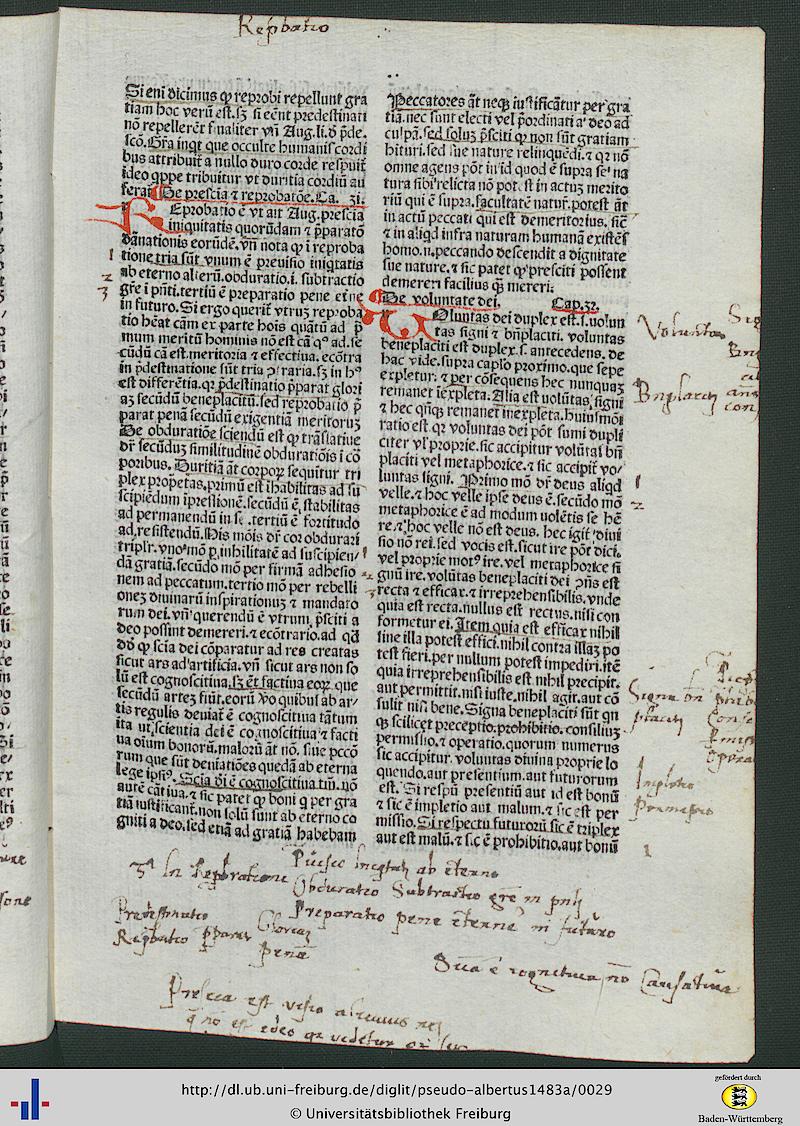 Rep̄batio
Si eni dicimus ꝙ reprobi repellunt gra
tiam hoc verū est. sꝫ si eēnt predestinati
nō repellerēt finaliter vn̄ Aug. li. d̄ p̄de.
scō. Gr̄a inqt que occulte humanis cordi
bus attribuit̄ a nullo duro corde respuit̄
ideo qppe tribuitur vt duritia cordiū au
ferat̄ De prescia ⁊ reprobatōe. Ca. 31.
REprobatio ē vt ait Aug. prescia
iniquitatis quorūdam ⁊ p̄paratō
dānationis eorūdē. vn̄ nota ꝙ ī reproba
tione tria sūt vnum ē preuisio iniqtatis
ab eterno alterū. obduratio. i. subtractio
gr̄e ī pn̄ti. tertiū ē preparatio pene et̄ne
in futuro. Si ergo querit̄ vtruꝫ reproba
tio hēat cām ex parte hoīs quātū ad p̄
mum meritū hominis nō est cā qͦ ad. se
cūdū cā est. meritoria ⁊ effectiua. ecōtra
in p̄destinatione sūt tria ꝯtraria. sꝫ in hͦ
est differētia. qr p̄destinatio p̄parat glori
aꝫ secūdū beneplacitū. sed reprobatio p̄
parat penā secūdū exigentiā meritoruꝫ
De obduratiōe sciendū est ꝙ trāslatiue
dr̄ secūduꝫ similitudinē obduratiōis ī cō
poribus. Duritiā āt corpoꝝ sequitur tri
plex propetas. primū est ihabilitas ad su
scipiēdum īpressionē. secūdū ē. stabilitas
ad permanendū in se. tertiū ē fortitudo
ad resistendū. His mōis dr̄ cor obdurari
triplr̄. vnoͦ mō ꝑ inhibilitatē ad suscipien/
dā gratiā. secūdo mō per firmā adhesio
nem ad peccatum. tertio mō per rebelli
oneꝫ diuinarū inspirationuꝫ ⁊ mandato
rum dei. vn̄ querendū ē vtrum p̄sciti a
deo possint demereri. ⁊ ecōtrario. ad qd̄
dd̄ ꝙ scia dei cōparatur ad res creatas
sicut ars ad artificia. vn̄ sicut ars non so
lū est cognoscitiua. sꝫ ēt factiua eoꝝ que
secūdū arteꝫ fiūt. eorū v̄o quibus ab ar/
tis regulis deuiat̄ ē cognoscitiua tātum
ita ut scientia dei ē cognoscitiua ⁊ facti
ua oīum bonorū. malorū āt nō. siue pccō
rum que sūt deniatiōes quedā ab eterna
lege ipsiꝰ. Scia di ē cognoscitiua tm̄. nō
autē cātiua. ⁊ sic patet ꝙ boni q per gra
tiā iustificant̄. non solū sunt ab eterno co
gniti a deo. sed etiā ad gratiā habendam
Peccatores āt neqꝫ iustificātur per gra
tiā. nec sunt electi vel p̄ordinati a deo ad
culpā. sed soluꝫ p̄sciti ꝙ non sūt gratiam
hīturi. sed sue nature relinquēdi. ⁊ qr nō
omne agens pōt in id quod ē supra seͦ na
tura sibi relicta nō pōt. st in actuꝫ merito
riū qui ē supra. facultatē natur̄. potest āt
in actū peccati qui est demeritorius. sic̄
⁊ in aliqd infra naturam humanā existēs
homo. n. peccando descendit a dignitate
sue nature. ⁊ sic patet ꝙ presciti possent
demereri facilius ꝙ mereri.
De voluntate dei. Cap. 32.
VOluntas dei duplex est. s. volun
tas signi ⁊ bn̄placiti. voluntas
beneplaciti est duplex. s. antecedens. de
hac vide. supra caplo proximo. que sepe
expletur. ⁊ per cōsequens hec nunquaꝫ
remanet īexpleta. Alia est uolūtas signi
⁊ hec qn̄qꝫ remanet inexpleta. huiusmōi
ratio est qr voluntas dei pōt sumi dupli
citer vl̄ proprie. sic accipitur volūtas bn̄
placiti vel metaphorice. ⁊ sic accipit̄ vo/
luntas signi. Primo mō dr̄ deus aliqd
velle. ⁊ hoc velle ipse deus ē. secūdo mō
metaphorice ē ad modum uolētis se hē
re. ⁊ hoc velle nō est deus. hec igit̄ diui
sio nō rei. sed vocis est. sicut ire pōt dici.
vel proprie motꝰ ire. vel metaphorice si
gnū ire. volūtas beneplaciti dei oīs est
recta ⁊ efficax. ⁊ irreprehensibilis. vnde
quia est recta. nullus est rectus. nisi con
formetur ei. Item quia est efficax nihil
sine illa potest effici. nihil contra illaꝫ po
test fieri. per nullum potest impediri. itē
quia irreprehensibilis est nihil precipit.
aut permittit. nisi iuste. nihil agit. aut cō
sulit nisi bene. Signa beneplaciti sūt qn
qꝫ scilicet preceptio. prohibitio. consiliuꝫ
permissio. ⁊ operatio. quorum numerus
sic accipitur. voluntas diuina proprie lo
quendo. aut presentium. aut futurorum
est. Si respū presentiū aut id est bonū
⁊ sic ē impletio aut malum. ⁊ sic est per
missio. Si respectu futurorū sic ē triplex
aut est malū. ⁊ sic ē prohibitio. aut bonū
1
2
3
1
2
3
1
2
Voluntas
Bn̄placiti
Signa bn̄
placiti
Impletio
Permissio
1
3ᵃ In Reprobatione
Obduratio Subtractio gr̄e in pn̄ti
Preparatio pene eterne in futuro
Predestinatio
Rep̄batio p̄parat
Gloriaꝫ
Penā
Scīa ē cognitiua nō Causatiua
http://dl.ub.uni-freiburg.de/diglit/pseudo-albertus1483a/0029
© Universitätsbibliothek Freiburg
gefördert durch
Baden-Württemberg